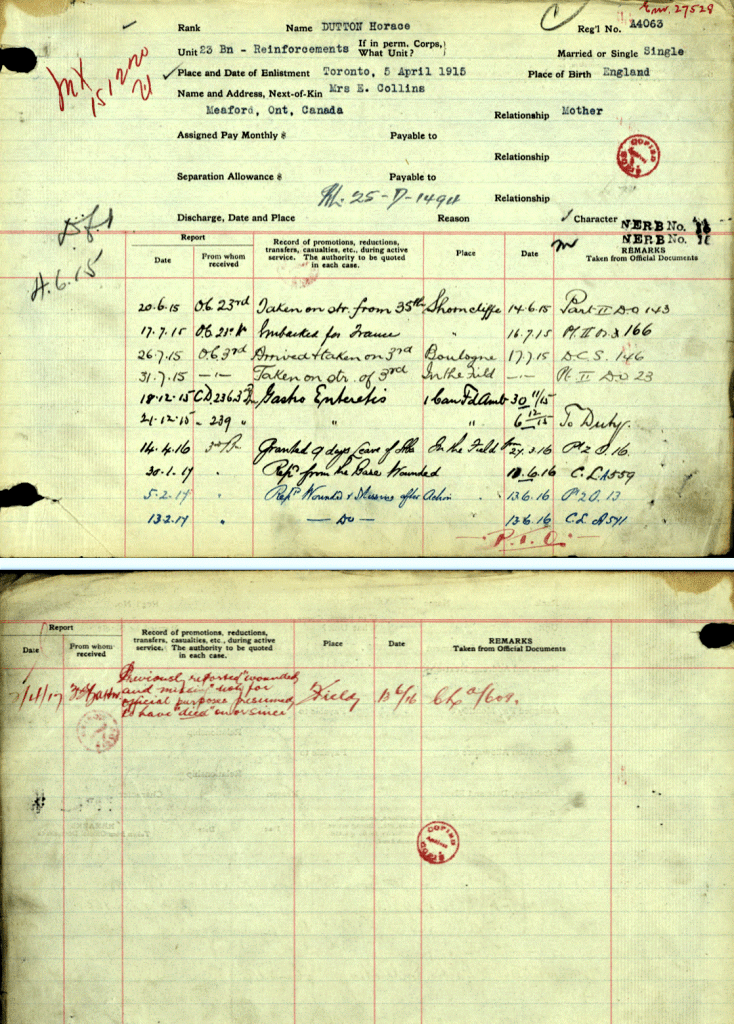 Emr. 27528
Rank Name DUTTON Horace Reg'l No. A4063
Unit 23 Bn - Reinforcements If in perm. Corps, What Unit? Married or Single Single
Place and Date of Enlistment Toronto, 5 April 1915 Place of Birth England
Name and Address, Next-of-Kin Mrs E. Collins
Meaford, Ont, Canada Relationship Mother
Assigned Pay Monthly $ Payable to
Relationship
Separation Allowance $ Payable to
25-D-1494 Relationship
Discharge, Date and Place Reason Character
NERB No. 16
NERB No.
4.6.15
Report
Date From whom received Record of promotions, reductions, transfers, casualties, etc., during active service. The authority to be quoted in each case. Place Date REMARKS Taken from Official Documents
20.6.15 O.C. 23rd Taken on str. from 35th Shorncliffe 14.6.15 Part II D.O 143
17.7.15 O.C. Embarked for France " 16.7.15 Pt. II 166
26.7.15 O.C. 3rd Arrived & taken on 3rd Boulogne 17.7.15 D.C.S. 146
31.7.15 -"- Taken on str. of 3rd In the Field -"- Pt. II D.O 23
18.12.15 C.D. 236 Gastro Enteretis 1 Can Fd Amb 30 11/15
21.12.15 " 239 " " 6 12/15 To Duty.
14.4.16 Granted 9 days Leave of Abs In the Field 16 Pt 2 O. 16.
30.1.17 " Rept from the Base Wounded 13.6.16 C.L. A559
5.2.17 Rept Wounded & Missing after Action " 13.6.16 Pt 2 O. 13
13.2.17 " — Do — 13.6.16 C.L. A571
P.T.O.
Report
Date From whom received Record of promotions, reductions, transfers, casualties, etc., during active service. The authority to be quoted in each case. Place Date REMARKS Taken from Official Documents
Previously reported "wounded
and missing" now for
official purposes presumed
to have "died" on or since Field 13/6/16